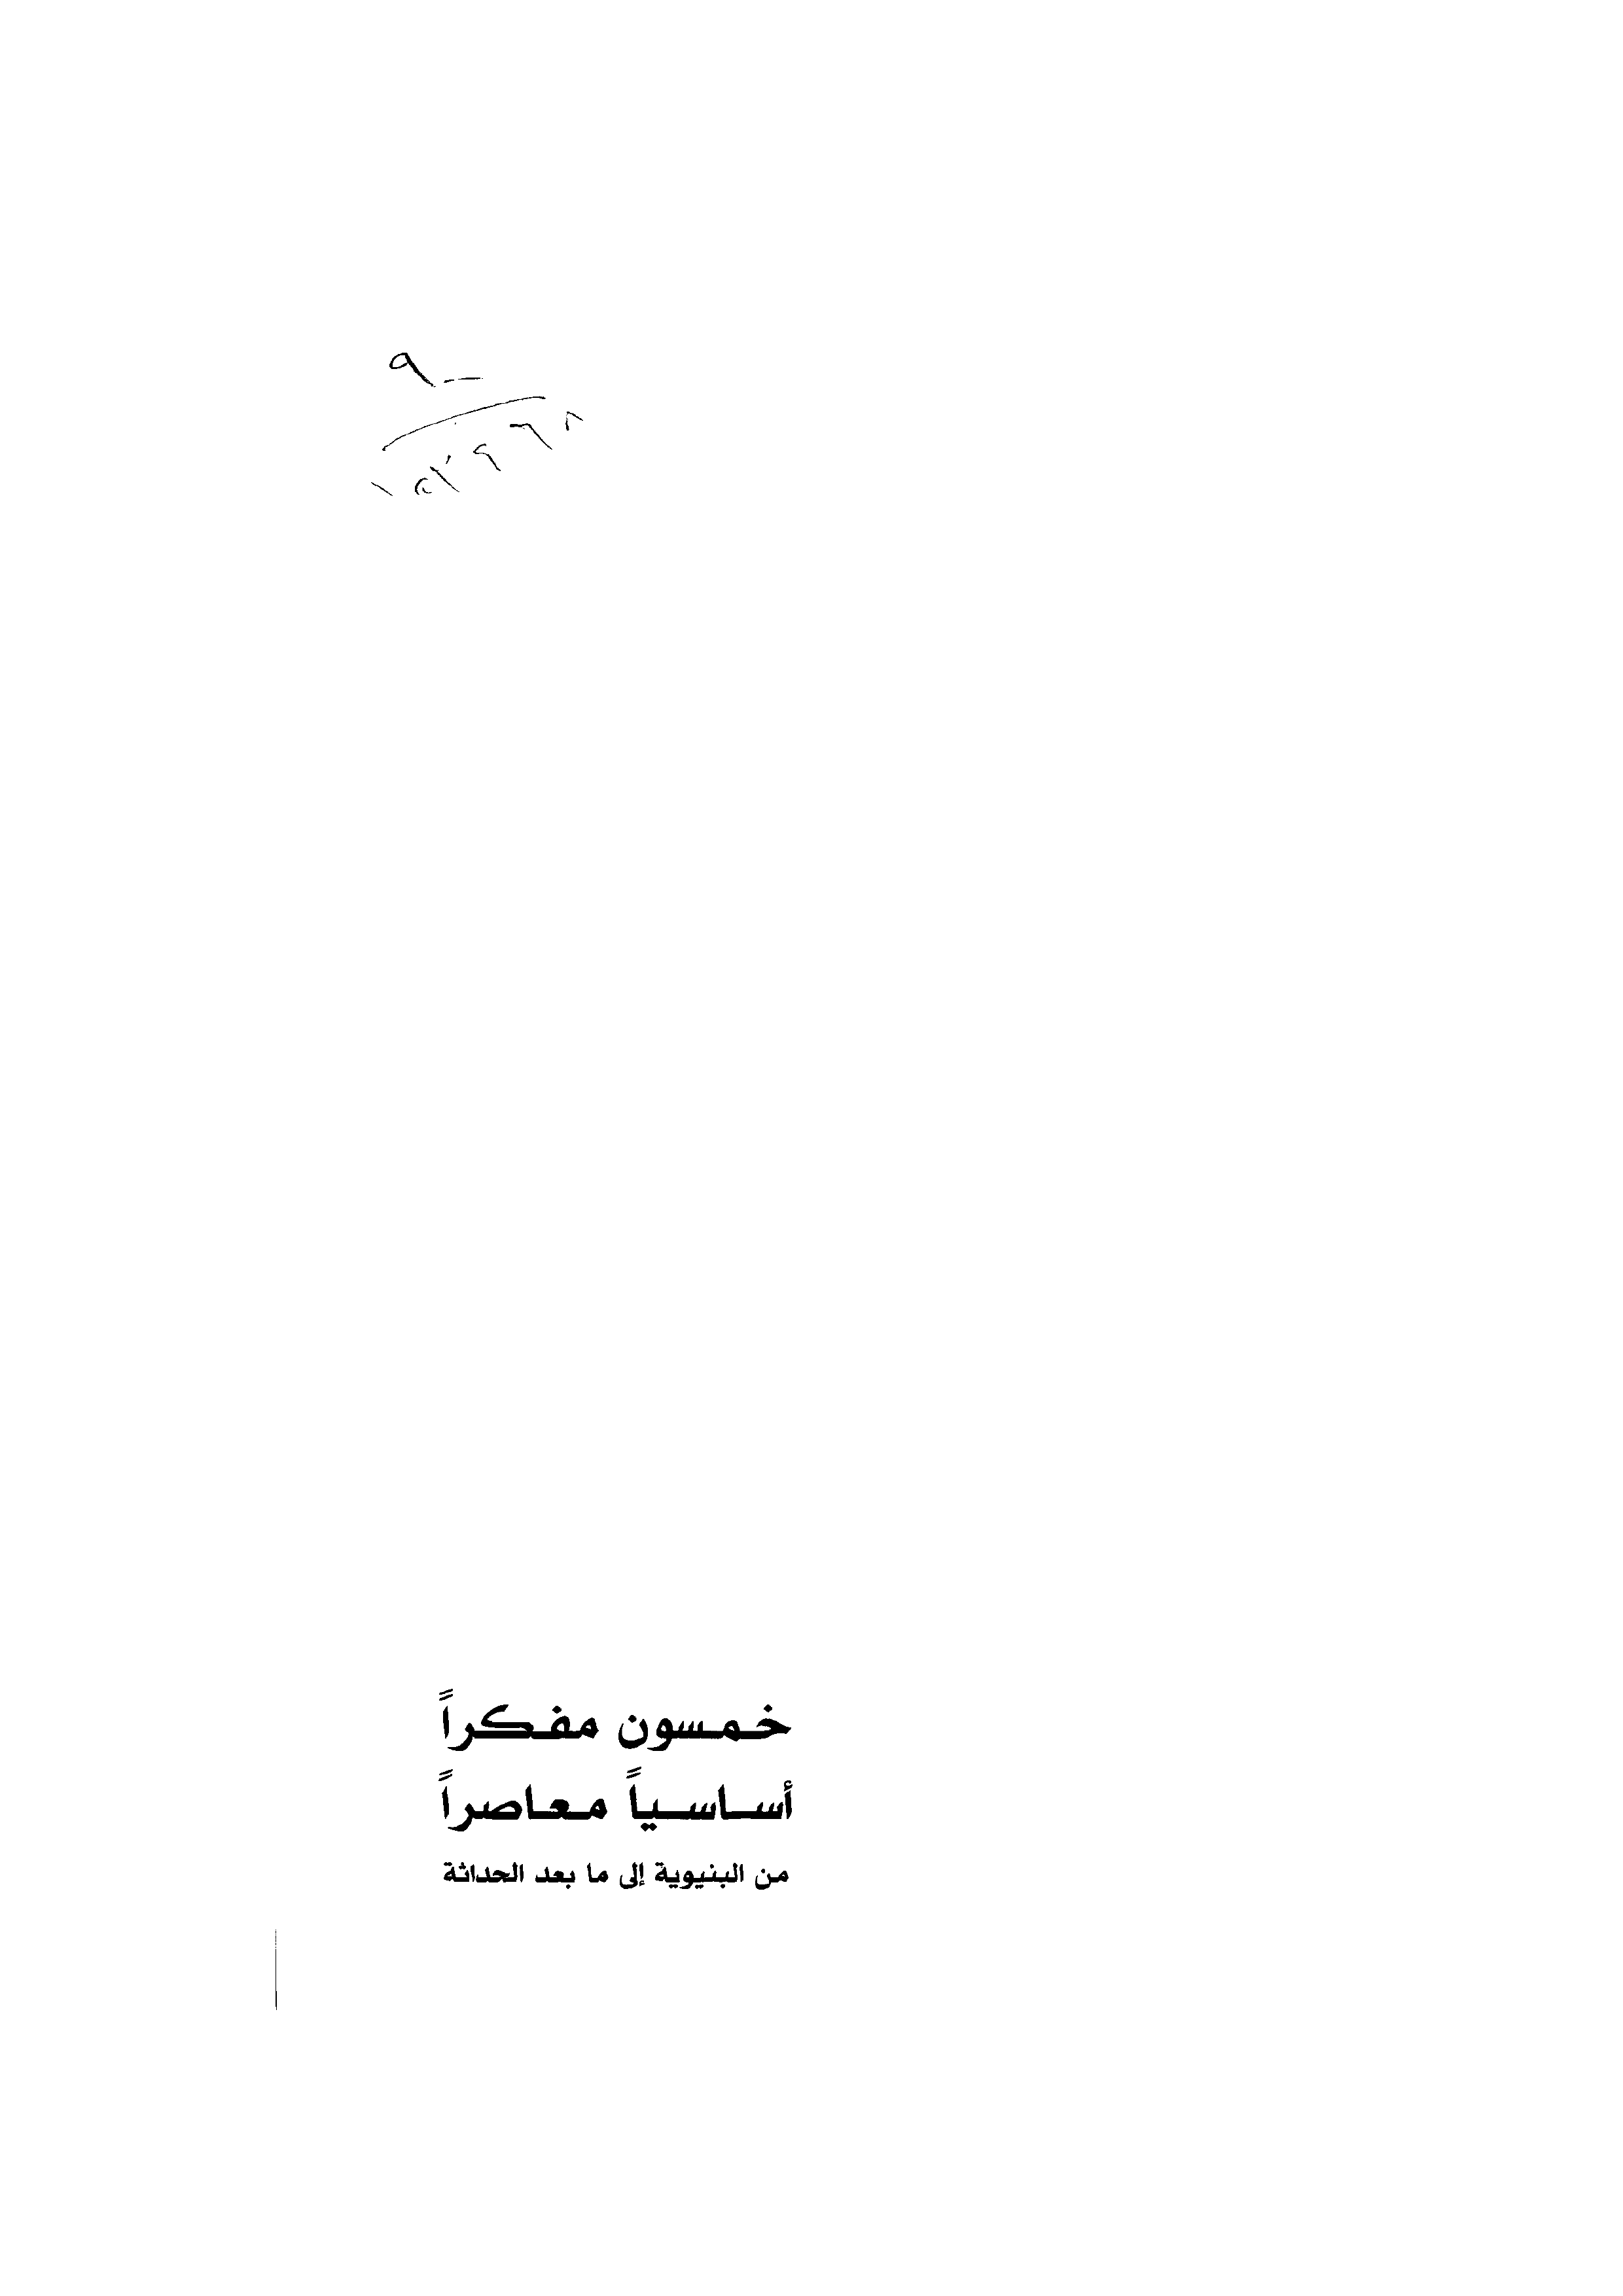 خمسون مفكراً
أساسياً معاصراً
من البنيوية إلى ما بعد الحداثة